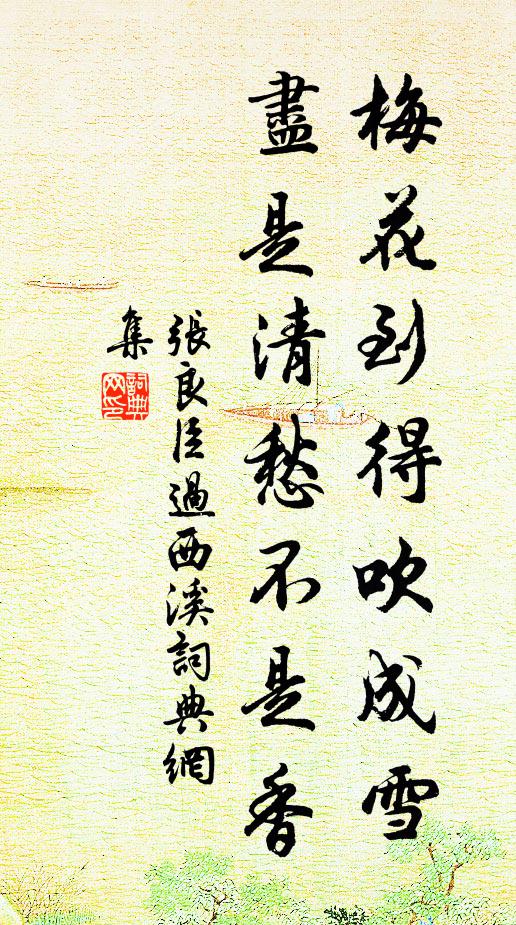 梅花到得吹成雪
盡是清愁不是香
張良臣過西溪詞典網
集
詞典
网印